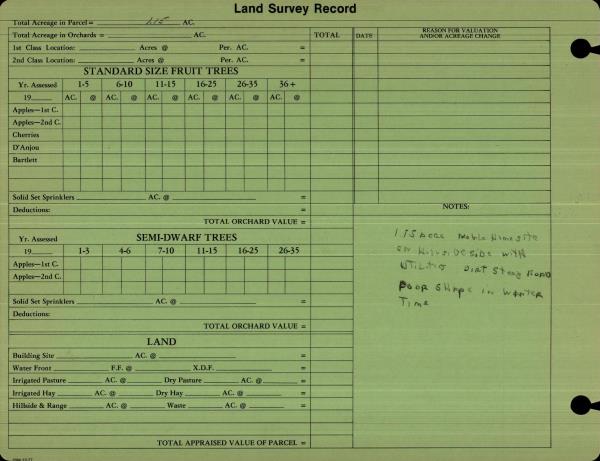 Land Survey Record
Total Acreage in Parcel = 1.15 AC.
Total Acreage in Orchards = AC. TOTAL DATE REASON FOR VALUATION AND/OR ACREAGE CHANGE
1st Class Location: Acres @ Per. AC. =
2nd Class Location: Acres @ Per. AC. =
STANDARD SIZE FRUIT TREES
Yr. Assessed 1-5 6-10 11-15 16-25 26-35 36 +
19 AC. @ AC. @ AC. @ AC. @ AC. @ AC. @
Apples—1st C.
Apples—2nd C.
Cherries
D'Anjou
Bartlett
Solid Set Sprinklers AC. @ =
Deductions: =
TOTAL ORCHARD VALUE =
Yr. Assessed SEMI-DWARF TREES
19 1-3 4-6 7-10 11-15 16-25 26-35
Apples—1st C.
Apples—2nd C.
Solid Set Sprinklers AC. @ =
Deductions:
TOTAL ORCHARD VALUE =
LAND
Building Site AC. @ =
Water Front F.F. @ X.D.F. =
Irrigated Pasture AC. @ Dry Pasture AC. @ =
Irrigated Hay AC. @ Dry Hay AC. @ =
Hillside & Range AC. @ Waste AC. @ =
TOTAL APPRAISED VALUE OF PARCEL =
NOTES:
1.15 acre Mobile Home site
on Hillside with
Utilities Dirt Road
Poor Shape in Winter
Time